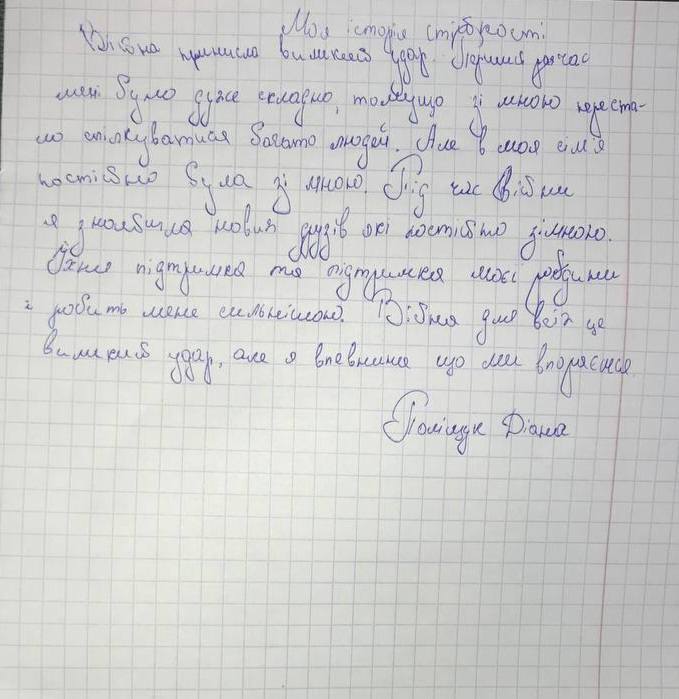 Моя історія стійкості.
Війна принисла виликий удар. Перший рачас
мені було дуже складно, томущо зі мною переста-
ло спілкуватися багато людей. Але в моя сім'я
постійно була зі мною. Під час війни
я знайшла нових друзів які постійно зімною.
Їхня підтримка та підтримка моєї родини
і робить мене сильнішою. Війна для всіх це
виликий удар, але я впевнина що ми впораємся.
Поліщук Діана